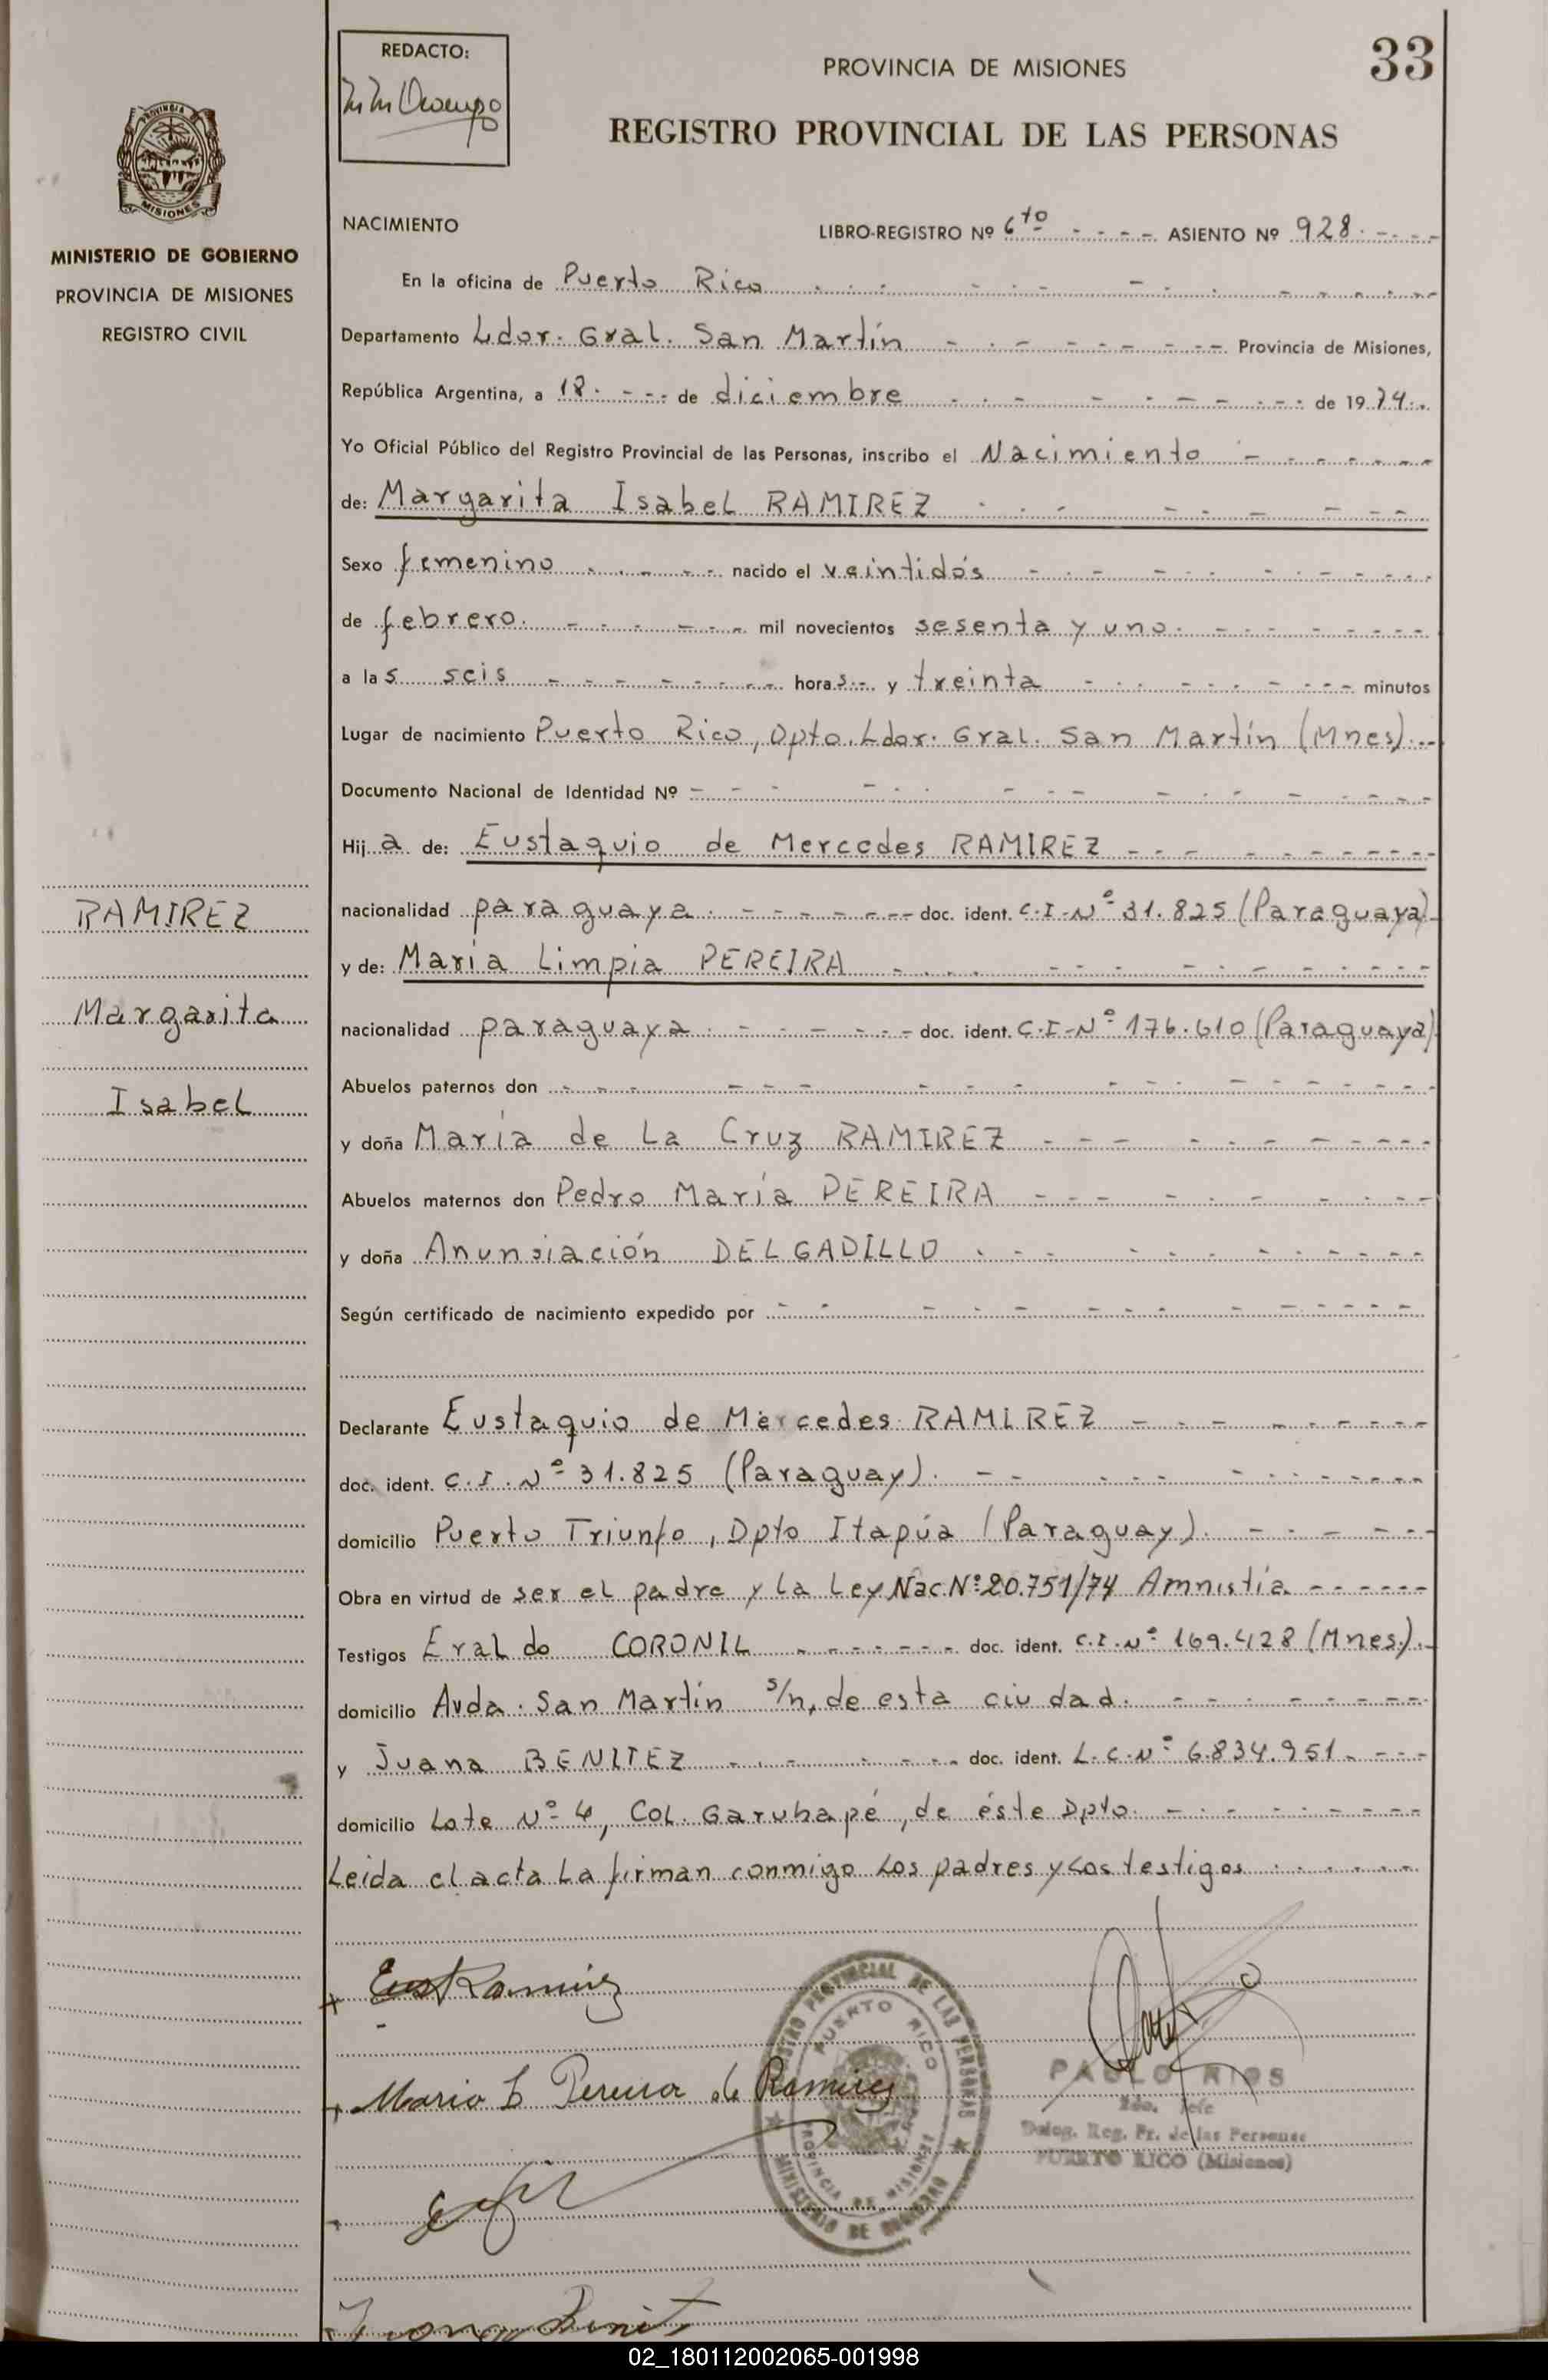 33
REDACTO:
PROVINCIA DE MISIONES
REGISTRO PROVINCIAL DE LAS PERSONAS
PROVINCIA
MISIONES
MINISTERIO DE GOBIERNO
PROVINCIA DE MISIONES
REGISTRO CIVIL
NACIMIENTO LIBRO-REGISTRO Nº 6to ASIENTO Nº 928
En la oficina de Puerto Rico
Departamento Ldor. Gral. San Martín Provincia de Misiones,
República Argentina, a 18 de diciembre de 1974
Yo Oficial Público del Registro Provincial de las Personas, inscribo el Nacimiento
de: Margarita Isabel RAMIREZ
Sexo femenino nacido el veintidós
de febrero mil novecientos sesenta y uno
a las seis horas y treinta minutos
Lugar de nacimiento Puerto Rico, Dpto. Ldor. Gral. San Martín (Mnes).
Documento Nacional de Identidad Nº
Hija de: Eustaquio de Mercedes RAMIREZ
nacionalidad paraguaya doc. ident. C.I-Nº 31.825 (Paraguaya)
y de: María Limpia PEREIRA
nacionalidad paraguaya doc. ident. C.I-Nº 176.610 (Paraguaya)
RAMIREZ
Margarita
Isabel
Abuelos paternos don
y doña María de La Cruz RAMIREZ
Abuelos maternos don Pedro María PEREIRA
y doña Anunsiación DELGADILLO
Según certificado de nacimiento expedido por
Declarante Eustaquio de Mercedes RAMIREZ
doc. ident. C.I.Nº 31.825 (Paraguay).
domicilio Puerto Triunfo, Dpto Itapúa (Paraguay).
Obra en virtud de ser el padre y la Ley Nac.Nº 20.751/74 Amnistía
Testigos Eraldo CORONIL doc. ident. C.I.Nº 169.428 (Mnes.).
domicilio Avda. San Martín s/n, de esta ciudad.
y Juana BENITEZ doc. ident. L.C.Nº 6.834.951
domicilio Lote Nº 4, Col. Garuhapé, de éste Dpto.
Leida el acta la firman conmigo los padres y los testigos
Eust Ramirez
Maria L Pereira de Ramirez
REGISTRO PROVINCIAL DE LAS PERSONAS
PUERTO RICO
PROVINCIA DE MISIONES
MINISTERIO DE GOBIERNO
PABLO RIOS
2do. Jefe
Deleg. Reg. Pr. de las Personas
PUERTO RICO (Misiones)
Juana Benit
02_180112002065-001998